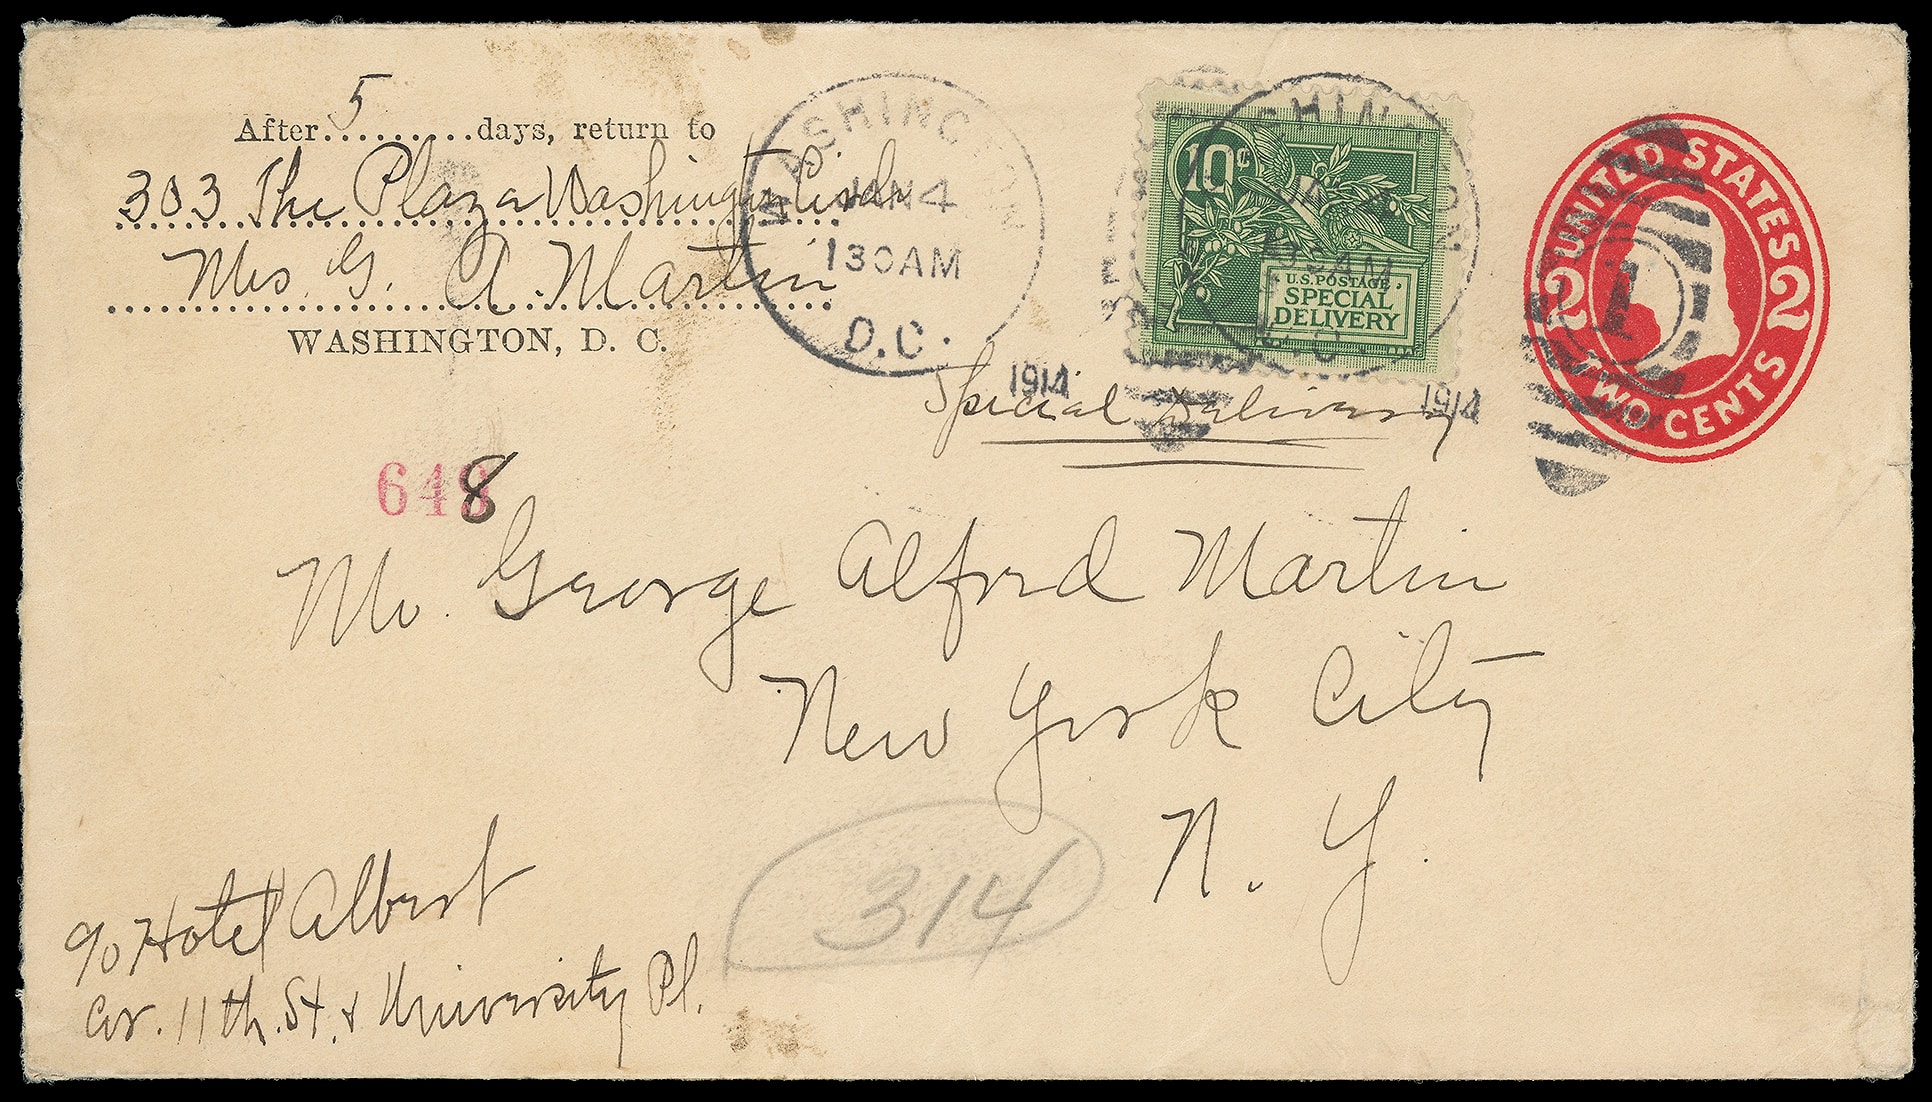 After 5 days, return to
303 The Plaza Washington Circle
Mrs. G. A. Martin
WASHINGTON, D. C.
WASHINGTON
JAN 4
130AM
D.C.
1914
10¢
U.S. POSTAGE.
SPECIAL
DELIVERY
1914
UNITED STATES
2 2
1
TWO CENTS
Special Delivery
648
Mr. George Alfred Martin
New York City
N. Y.
314
c/o Hotel Albert
Cor. 11th. St. & University Pl.